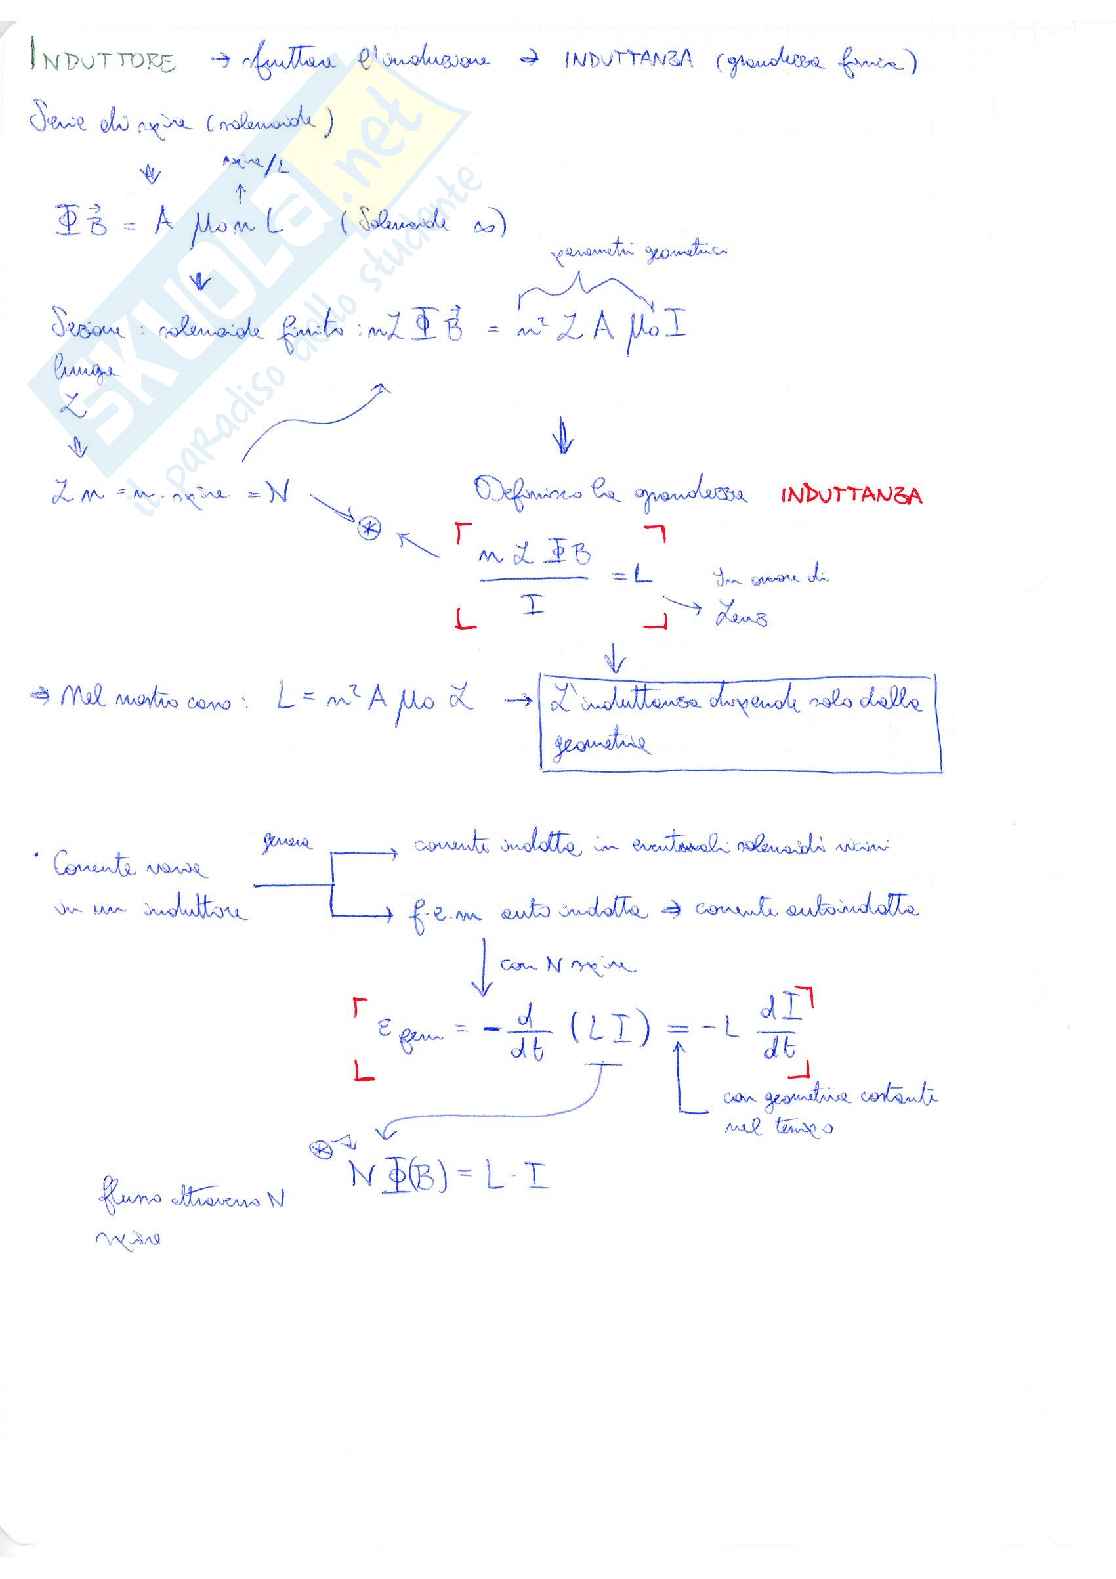 INDUTTORE → sfruttare l'induzione → INDUTTANZA (grandezza fisica)
Serie di spire (solenoide)
spire/L
Φ B⃗ = A μ₀ n L (Solenoide ∞)
parametri geometrici
Sezione : solenoide finito : nL Φ B⃗ = n² L A μ₀ I
lunga
L
L n = n. spire = N
Definisco la grandezza INDUTTANZA
n L Φ B / I = L
In onore di
Lenz
⇒ Nel nostro caso : L = n² A μ₀ L → L'induttanza dipende solo dalla
geometria
genera
corrente indotta in eventuali solenoidi vicini
· Corrente varia
in un induttore
f.e.m auto indotta → corrente autoindotta
con N spire
ε fem = - d/dt (L I) = -L dI/dt
con geometria costante
nel tempo
⊛ → N Φ(B) = L · I
flusso attraverso N
spire
SKUOLA.net
il paradiso dello studente